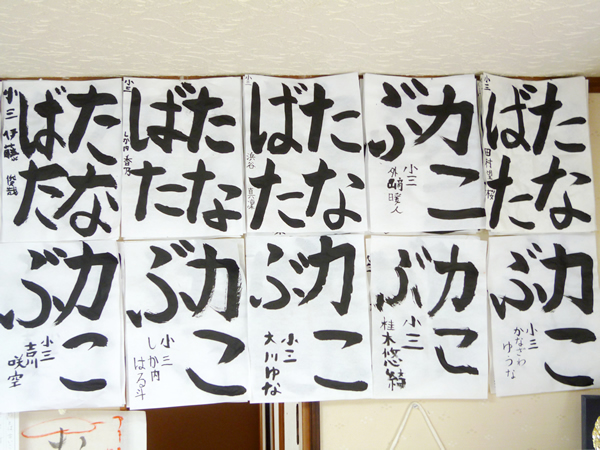 たな
ばた
小三
田村
力こ
ぶ
小三
外崎暖人
たな
ばた
小三
浜谷
たな
ばた
小三
香乃
たな
ばた
小三 伊藤
力こ
ぶ
小三
かなざわ
ゆうな
力こ
ぶ
小三
桂木悠
力こ
ぶ
小三
大川ゆな
力こ
ぶ
小三
しか内
はる斗
力こ
ぶ
小三
吉川
咲空
む